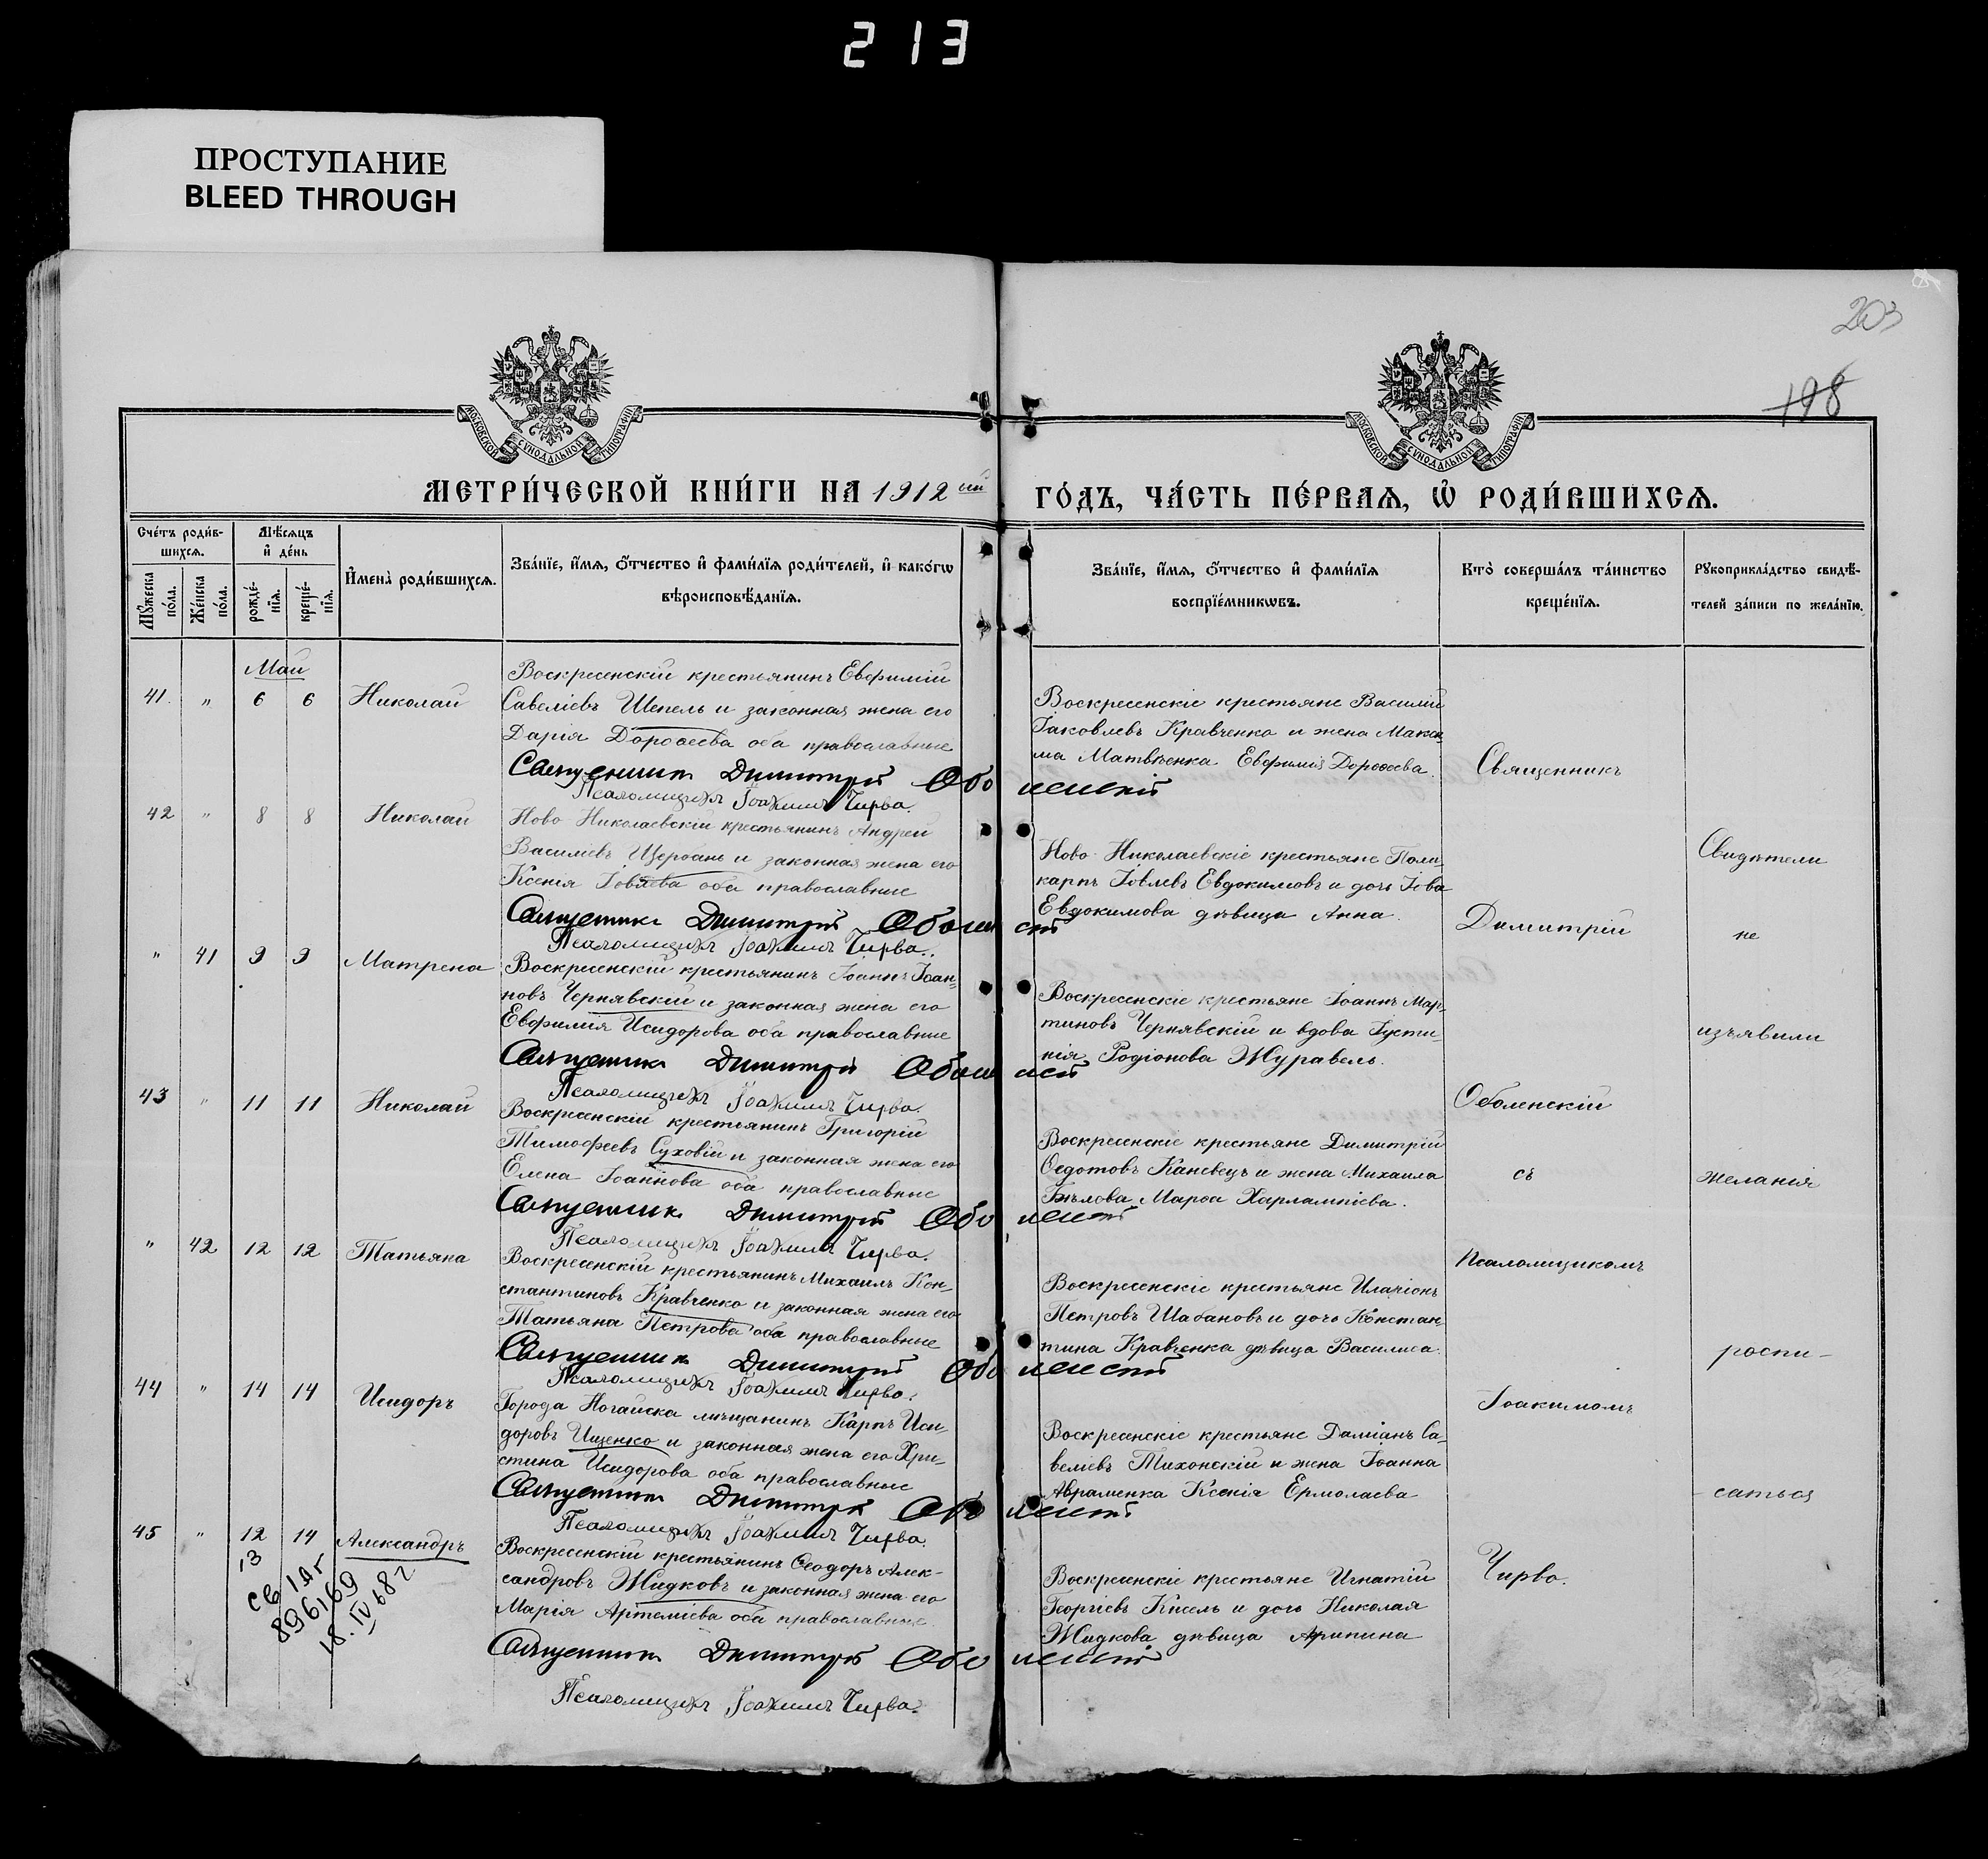 213
ПРОСТУПАНИЕ
BLEED THROUGH
203
198
МОСКОВСКОЙ СѴНОДАЛЬНОЙ ТИПОГРАФІИ
МОСКОВСКОЙ СѴНОДАЛЬНОЙ ТИПОГРАФІИ
МЕТРИ́ЧЕСКОЙ КНИ́ГИ НА 1912 ый
ГО́ДЪ, ЧА́СТЬ ПЕ́РВАѦ, Ѡ҆ РОДИ́ВШИХСѦ.
Сче́тъ роди́в-
шихсѧ.
Мꙋ́жеска
по́ла.
Же́нска
по́ла.
Мѣ́сѧцъ
и҆ де́нь
рожде́-
нїѧ.
креще́-
нїѧ.
И҆мена̀ роди́вшихсѧ.
Зва́нїе, и҆́мѧ, ѻ҆́тчество и҆ фами́лїѧ роди́телей, и҆ како́гѡ
вѣроисповѣ́данїѧ.
Зва́нїе, и҆́мѧ, ѻ҆́тчество и҆ фами́лїѧ
воспрїе́мникѡвъ.
Кто̀ соверша́лъ та́инство
креще́нїѧ.
Рꙋкоприкла́дство свидѣ́-
телей за́писи по жела́нїю.
Май
41. " 6 6 Николай
Воскресенскій крестьянинъ Евфимій
Савеліевъ Шепель и законная жена его
Дарія Дороѳеева оба православные
Священникъ Димитрій Оболенскій
Псаломщикъ Іоакимъ Чирва.
Воскресенскіе крестьяне Василій
Іаковлевъ Кравченко и жена Макси-
ма Матвѣенка Евфимія Дороѳеева.
42 " 8 8 Николай
Ново Николаевскій крестьянинъ Андрей
Василіевъ Щербань и законная жена его
Ксенія Іовлева оба православные
Священникъ Димитрій Оболенскій
Псаломщикъ Іоакимъ Чирва.
Ново Николаевскіе крестьяне Поли-
карпъ Іовлевъ Евдокимовъ и дочь Іова
Евдокимова дѣвица Анна.
" 41 9 9 Матрена
Воскресенскій крестьянинъ Іоаннъ Іоан-
новъ Чернявскій и законная жена его
Евфимія Исидорова оба православные
Священникъ Димитрій Оболенскій
Псаломщикъ Іоакимъ Чирва.
Воскресенскіе крестьяне Іоаннъ Мар-
тиновъ Чернявскій и вдова Іусти-
нія Родіонова Журавель.
43 " 11 11 Николай
Воскресенскій крестьянинъ Григорій
Тимофеевъ Суховій и законная жена его
Елена Іоаннова оба православные
Священникъ Димитрій Оболенскій
Псаломщикъ Іоакимъ Чирва.
Воскресенскіе крестьяне Димитрій
Ѳедотовъ Каневецъ и жена Михаила
Бѣлова Марѳа Харлампіева.
" 42 12 12 Татьяна
Воскресенскій крестьянинъ Михаилъ Кон-
стантиновъ Кравченко и законная жена его
Татьяна Петрова оба православные
Священникъ Димитрій Оболенскій
Псаломщикъ Іоакимъ Чирва.
Воскресенскіе крестьяне Иларіонъ
Петровъ Шабановъ и дочь Констан-
тина Кравченка дѣвица Василиса.
44 " 14 14 Исидоръ
Города Ногайска мѣщанинъ Карпъ Иси-
доровъ Ищенко и законная жена его Хри-
стина Исидорова оба православные
Священникъ Димитрій Оболенскій
Псаломщикъ Іоакимъ Чирва.
Воскресенскіе крестьяне Даміанъ Са-
веліевъ Тихонскій и жена Іоанна
Авраменка Ксенія Ермолаева
45 " 12 14 Александръ
13
св 1Аг
896169
18.IV 68г
Воскресенскій крестьянинъ Ѳеодоръ Алек-
сандровъ Жидковъ и законная жена его
Марія Артеміева оба православные.
Священникъ Димитрій Оболенскій
Псаломщикъ Іоакимъ Чирва.
Воскресенскіе крестьяне Игнатій
Георгіевъ Кисель и дочь Николая
Жидкова дѣвица Агрипина
Священникъ
Димитрій
Оболенскій
съ
Псаломщикомъ
Іоакимомъ
Чирво.
Свидѣтели
не
изъявили
желанія
роспи-
саться